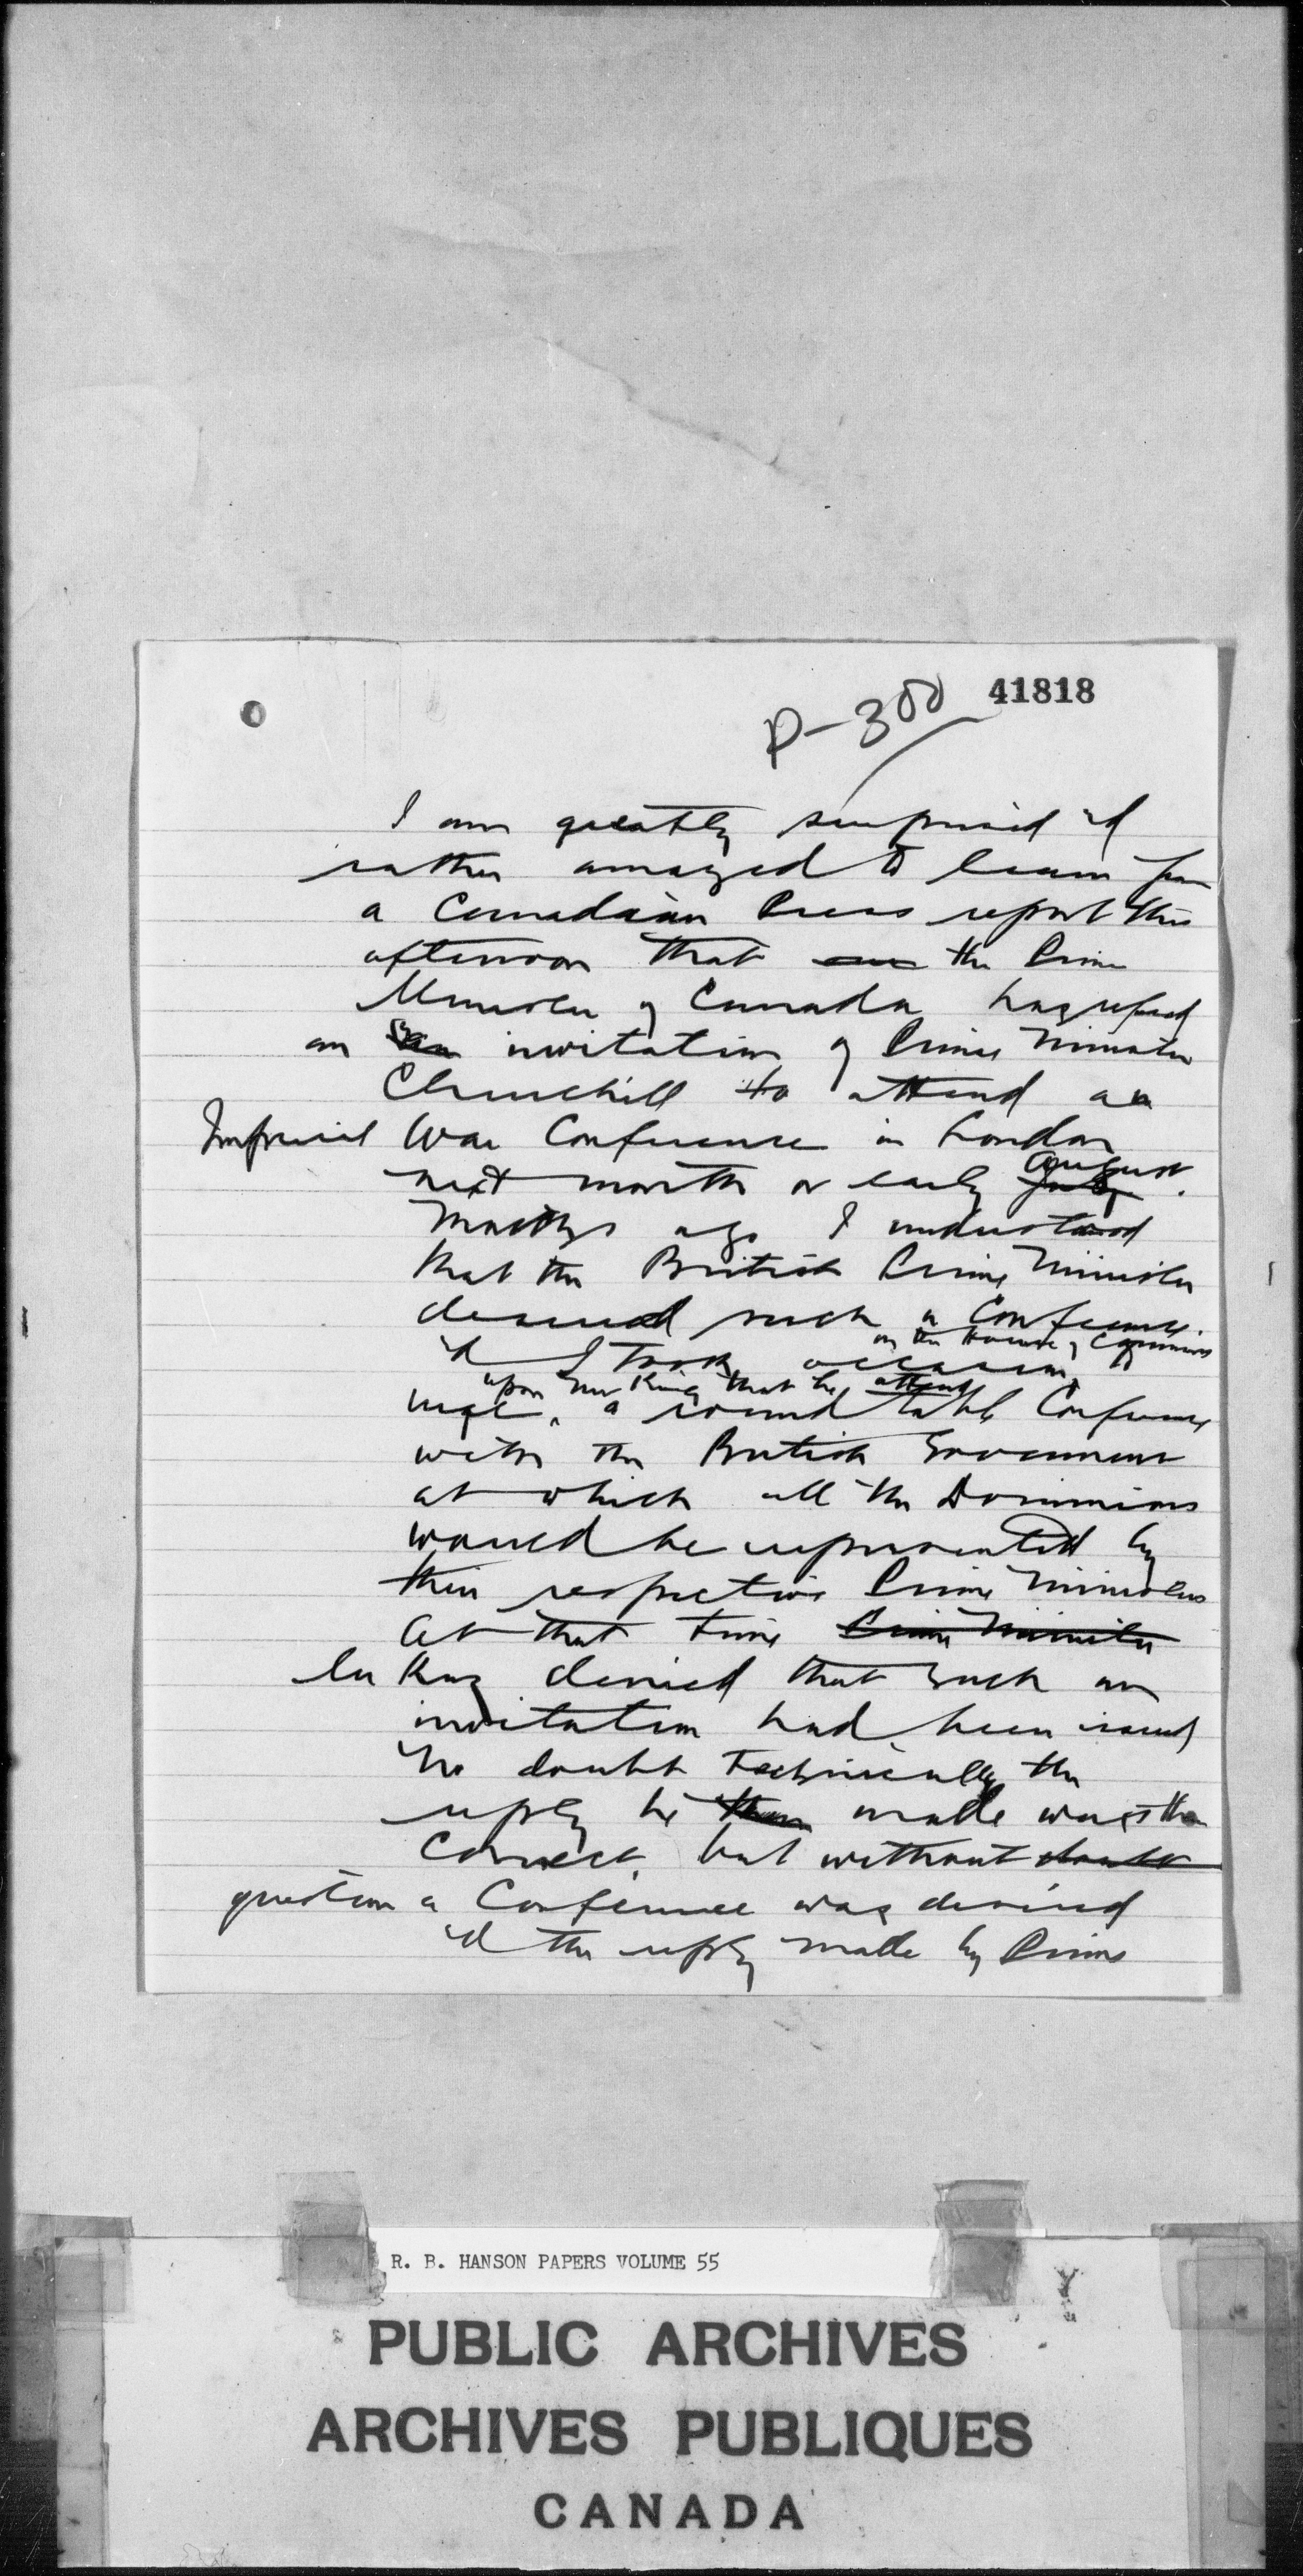 P-300 41818
I am greatly surprised &
rather amazed to learn from
a Canadian Press report this
afternoon that the Prime
Minister of Canada has refused
an invitation of Prime Minister
Churchill to attend an
Imperial War Conference in London
next month or early July August.
Months ago I understood
that the British Prime Minister
desired such a Conference
& I took occasion in the House of Commons to
urge upon Mr King that he attend a round table Conference
with the British Government
at which all the Dominions
would be represented by
their respective Prime Ministers
At that time Prime Minister
Mr King denied that such an
invitation had been issued
No doubt technically the
reply he then made was then
correct, but without doubt
question a Conference was desired
& the reply made by Prime
R. B. HANSON PAPERS VOLUME 55
PUBLIC ARCHIVES
ARCHIVES PUBLIQUES
CANADA